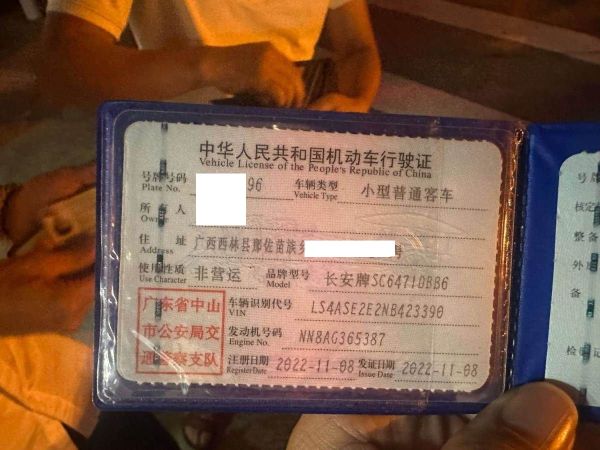 中华人民共和国机动车行驶证
Vehicle License of the People's Republic of China
号牌号码 96 车辆类型 小型普通客车
Plate No. Vehicle Type
所有人
Owner
住址 广西西林县那佐苗族乡 号
Address
使用性质 非营运 品牌型号 长安牌SC6471DBB6
Use Character Model
广东省中山市公安局交通警察支队
车辆识别代号 LS4ASE2E2NB423390
VIN
发动机号码 NN8AG365387
Engine No.
注册日期 2022-11-08 发证日期 2022-11-08
Register Date Issue Date
号牌
核定
整备
外
备
检验记